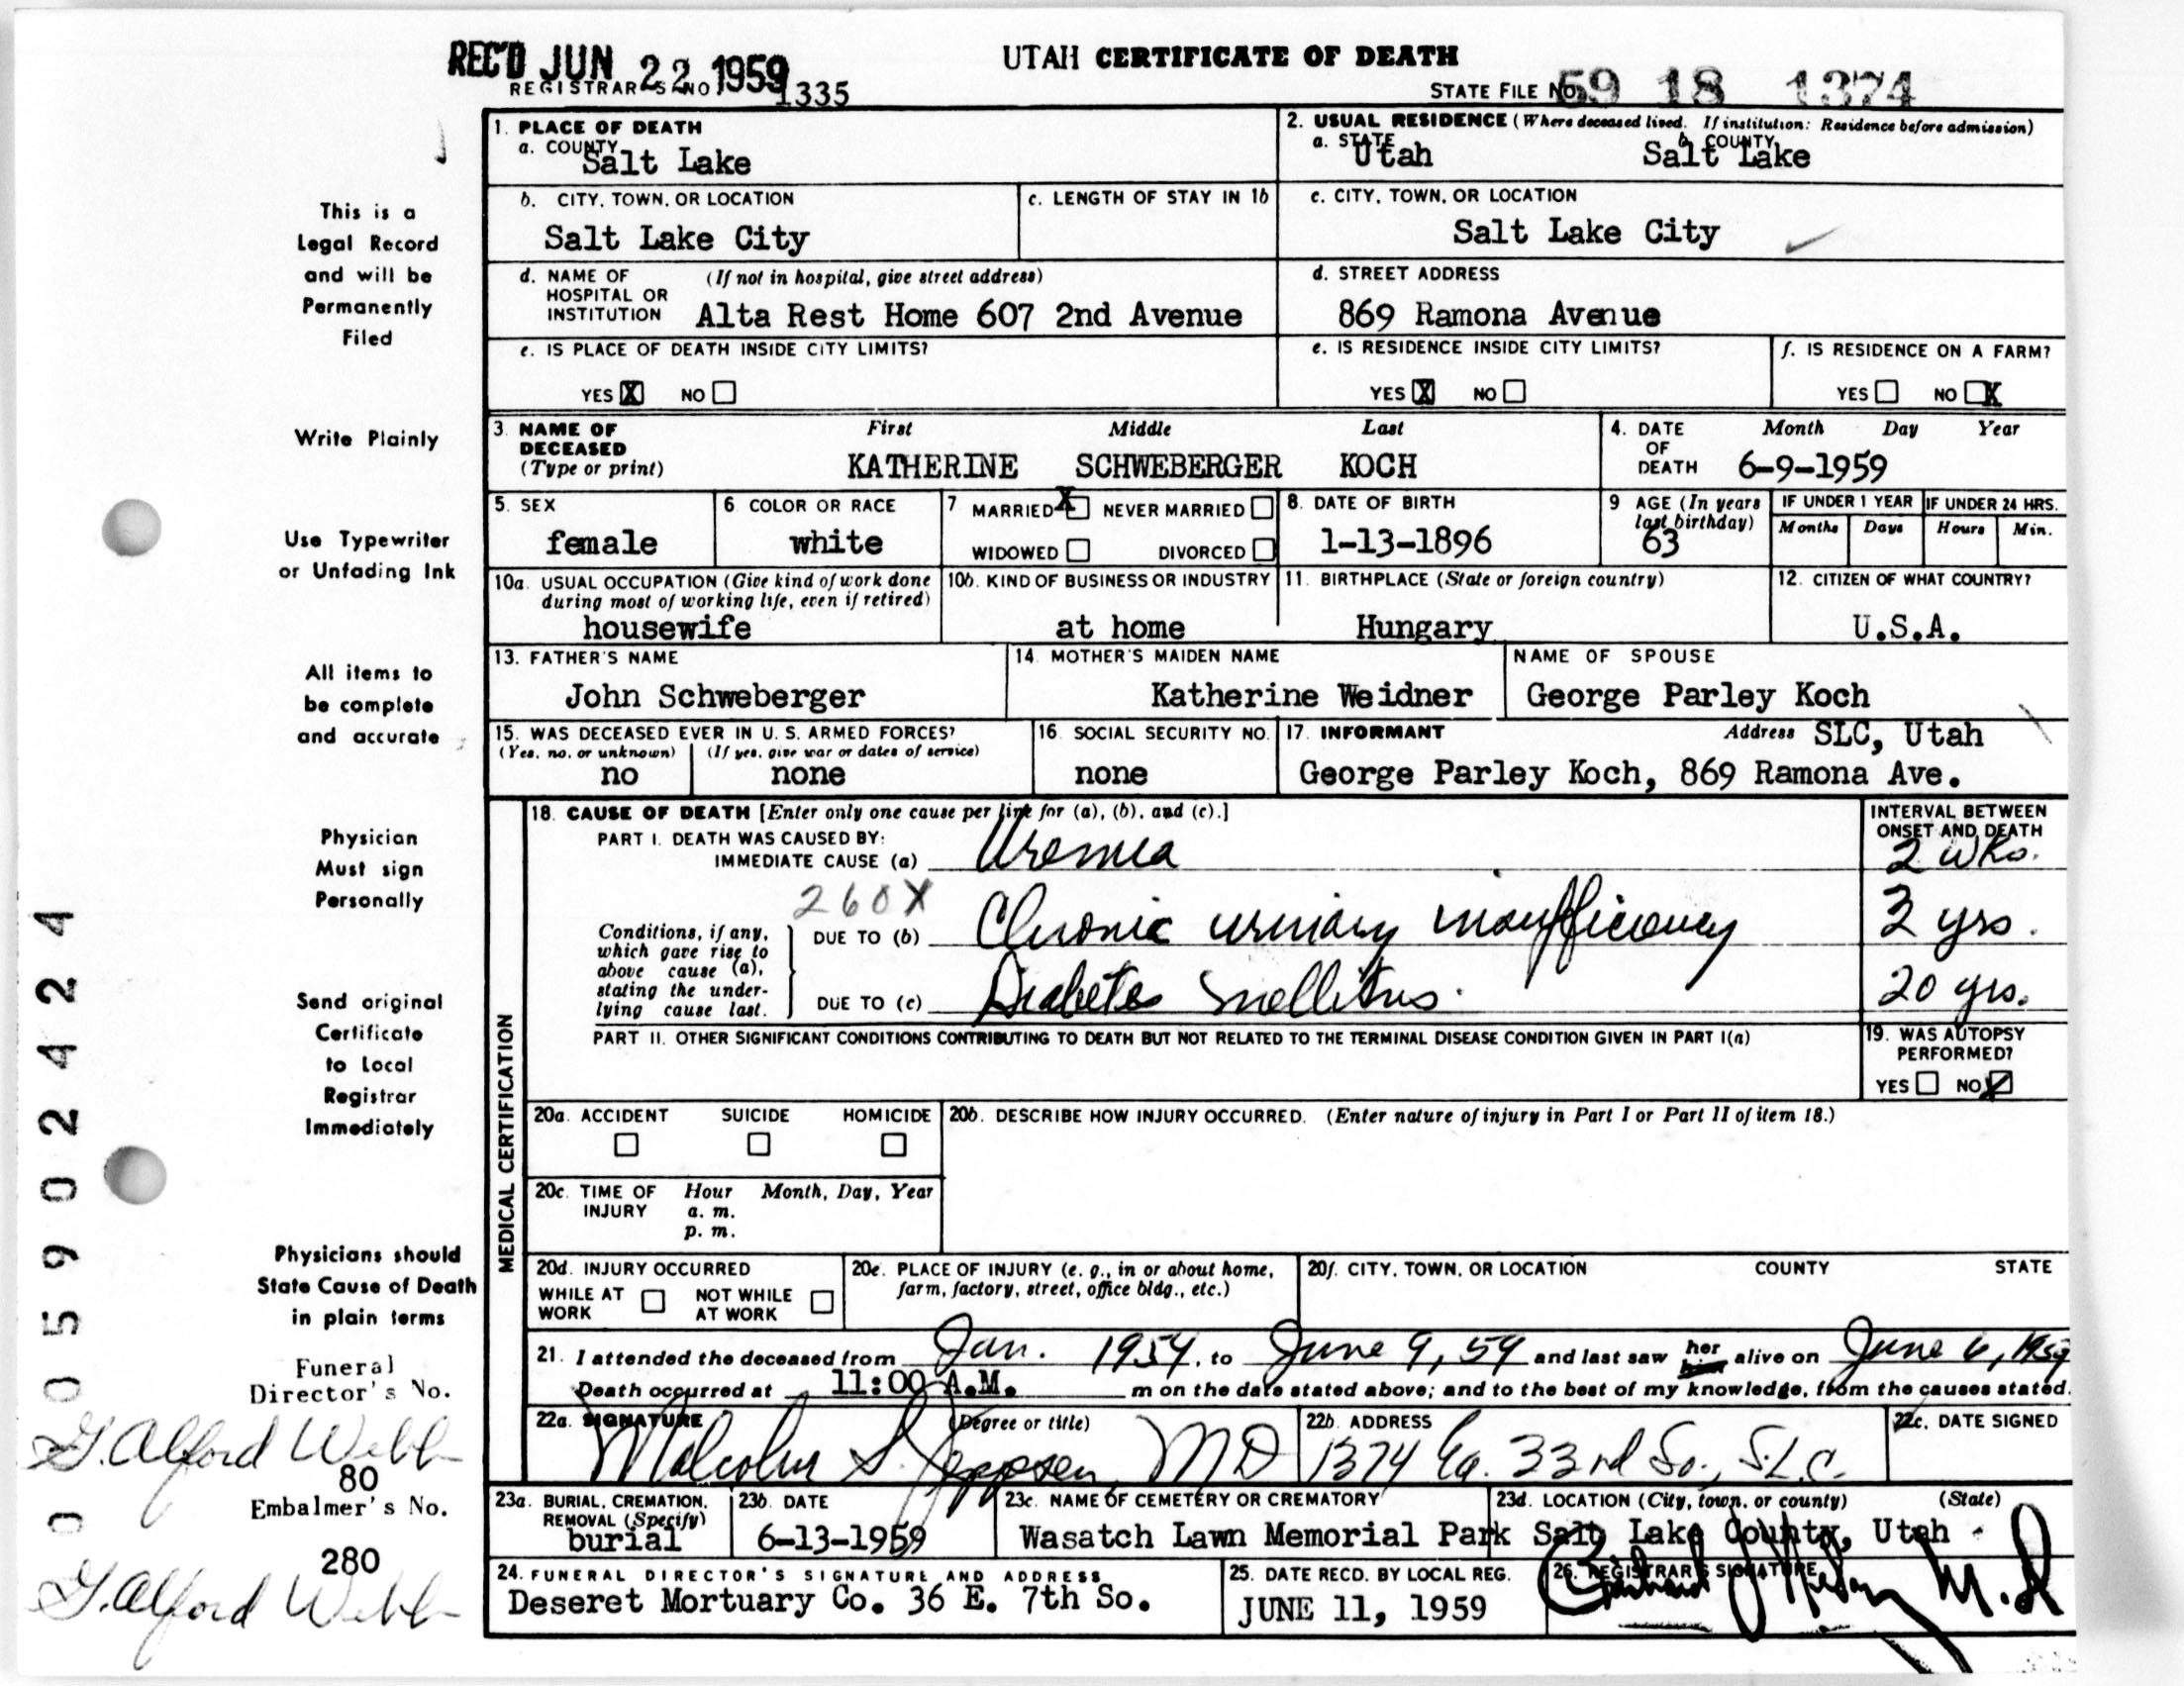 REC'D JUN 22 1959
UTAH CERTIFICATE OF DEATH
REGISTRAR'S NO 1335
STATE FILE NO. 59 18 1374
1. PLACE OF DEATH
a. COUNTY Salt Lake
2. USUAL RESIDENCE (Where deceased lived. If institution: Residence before admission)
a. STATE Utah b. COUNTY Salt Lake
b. CITY, TOWN, OR LOCATION Salt Lake City
c. LENGTH OF STAY IN 1b
c. CITY, TOWN, OR LOCATION Salt Lake City
d. NAME OF HOSPITAL OR INSTITUTION (If not in hospital, give street address)
Alta Rest Home 607 2nd Avenue
d. STREET ADDRESS
869 Ramona Avenue
e. IS PLACE OF DEATH INSIDE CITY LIMITS?
YES X NO
e. IS RESIDENCE INSIDE CITY LIMITS?
YES X NO
f. IS RESIDENCE ON A FARM?
YES NO X
3. NAME OF DECEASED (Type or print)
First Middle Last
KATHERINE SCHWEBERGER KOCH
4. DATE OF DEATH Month Day Year
6-9-1959
5. SEX
female
6. COLOR OR RACE
white
7 MARRIED X NEVER MARRIED
WIDOWED DIVORCED
8. DATE OF BIRTH
1-13-1896
9 AGE (In years last birthday)
63
IF UNDER 1 YEAR IF UNDER 24 HRS.
Months Days Hours Min.
10a. USUAL OCCUPATION (Give kind of work done during most of working life, even if retired)
housewife
10b. KIND OF BUSINESS OR INDUSTRY
at home
11. BIRTHPLACE (State or foreign country)
Hungary
12. CITIZEN OF WHAT COUNTRY?
U.S.A.
13. FATHER'S NAME
John Schweberger
14. MOTHER'S MAIDEN NAME
Katherine Weidner
NAME OF SPOUSE
George Parley Koch
15. WAS DECEASED EVER IN U. S. ARMED FORCES?
(Yes, no, or unknown) (If yes, give war or dates of service)
no none
16. SOCIAL SECURITY NO.
none
17. INFORMANT Address SLC, Utah
George Parley Koch, 869 Ramona Ave.
MEDICAL CERTIFICATION
18. CAUSE OF DEATH [Enter only one cause per line for (a), (b), and (c).]
INTERVAL BETWEEN ONSET AND DEATH
PART I. DEATH WAS CAUSED BY:
IMMEDIATE CAUSE (a) Uremia 2 wks.
260X
Conditions, if any, which gave rise to above cause (a), stating the underlying cause last.
DUE TO (b) Chronic urinary insufficiency 3 yrs.
DUE TO (c) Diabetes mellitus. 20 yrs.
PART II. OTHER SIGNIFICANT CONDITIONS CONTRIBUTING TO DEATH BUT NOT RELATED TO THE TERMINAL DISEASE CONDITION GIVEN IN PART I(a)
19. WAS AUTOPSY PERFORMED?
YES NO
20a. ACCIDENT SUICIDE HOMICIDE
20b. DESCRIBE HOW INJURY OCCURRED. (Enter nature of injury in Part I or Part II of item 18.)
20c. TIME OF INJURY Hour Month, Day, Year
a. m.
p. m.
20d. INJURY OCCURRED
WHILE AT WORK NOT WHILE AT WORK
20e. PLACE OF INJURY (e. g., in or about home, farm, factory, street, office bldg., etc.)
20f. CITY, TOWN, OR LOCATION COUNTY STATE
21. I attended the deceased from Jan. 1954, to June 9, 59 and last saw her him alive on June 6, 1959
Death occurred at 11:00 A.M. m on the date stated above; and to the best of my knowledge, from the causes stated.
22a. SIGNATURE (Degree or title)
Malcolm S. Jeppsen MD
22b. ADDRESS
1374 Ea. 33rd So., S.L.C.
22c. DATE SIGNED
23a. BURIAL, CREMATION, REMOVAL (Specify)
burial
23b. DATE
6-13-1959
23c. NAME OF CEMETERY OR CREMATORY
Wasatch Lawn Memorial Park
23d. LOCATION (City, town, or county) (State)
Salt Lake County, Utah
24. FUNERAL DIRECTOR'S SIGNATURE AND ADDRESS
Deseret Mortuary Co. 36 E. 7th So.
25. DATE RECD. BY LOCAL REG.
JUNE 11, 1959
26. REGISTRAR'S SIGNATURE
M.D
This is a
Legal Record
and will be
Permanently
Filed
Write Plainly
Use Typewriter
or Unfading Ink
All items to
be complete
and accurate
Physician
Must sign
Personally
Send original
Certificate
to Local
Registrar
Immediately
Physicians should
State Cause of Death
in plain terms
Funeral
Director's No.
G. Alford Webb
80
Embalmer's No.
280
G. Alford Webb
005902424